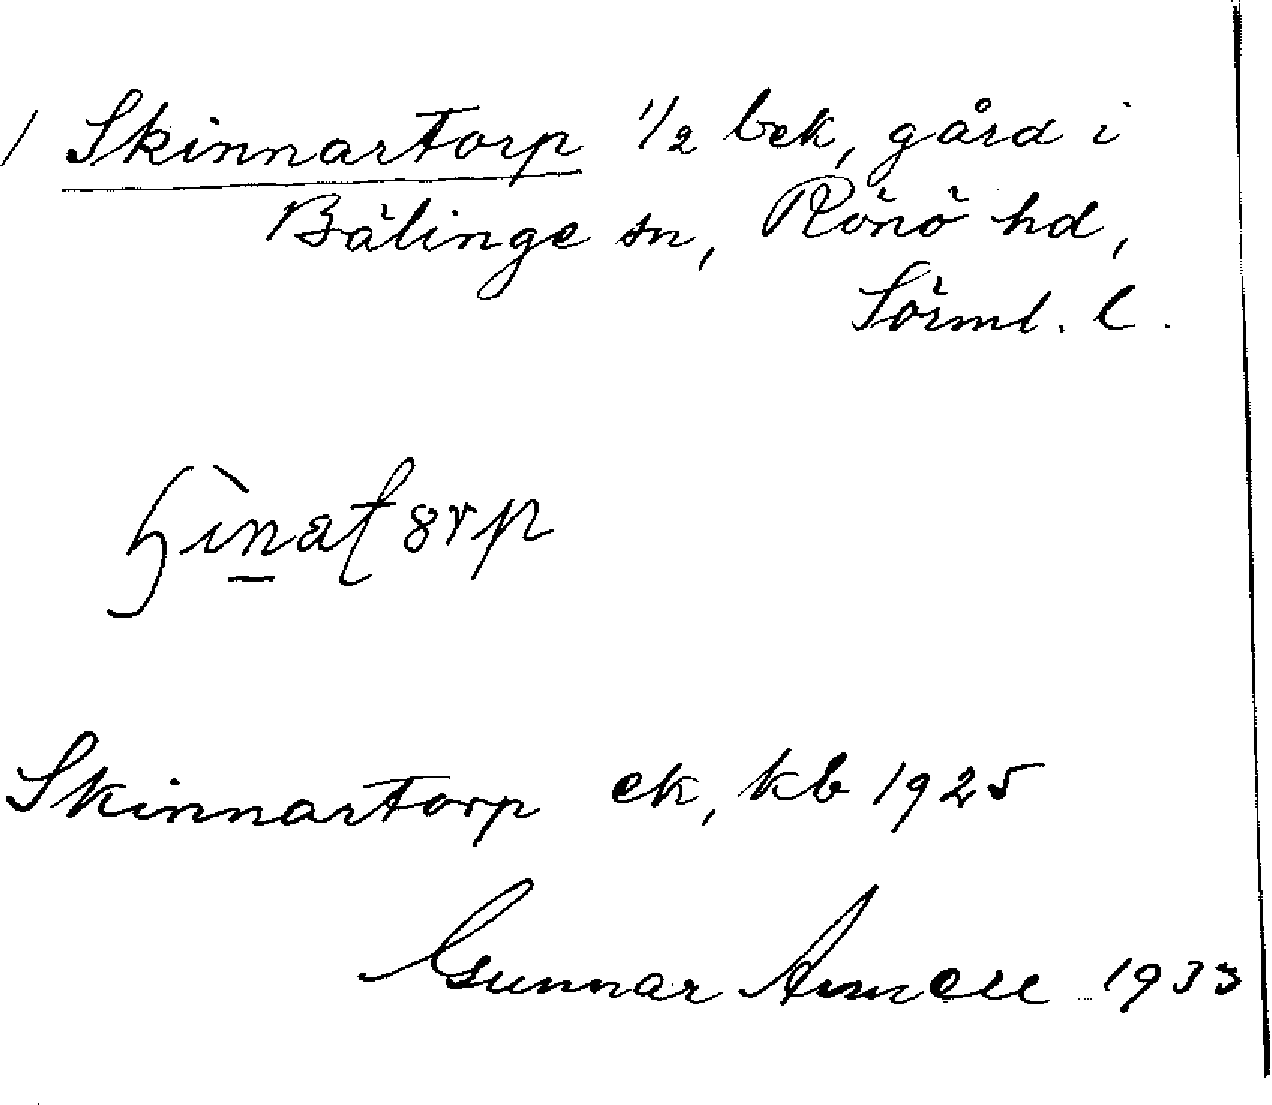 / Skinnartorp 1/2 bek, gård i
Bälinge sn, Rönö hd,
Sörml. l.
Skinnartorp ek, kb 1925
Gunnar Armell 1933